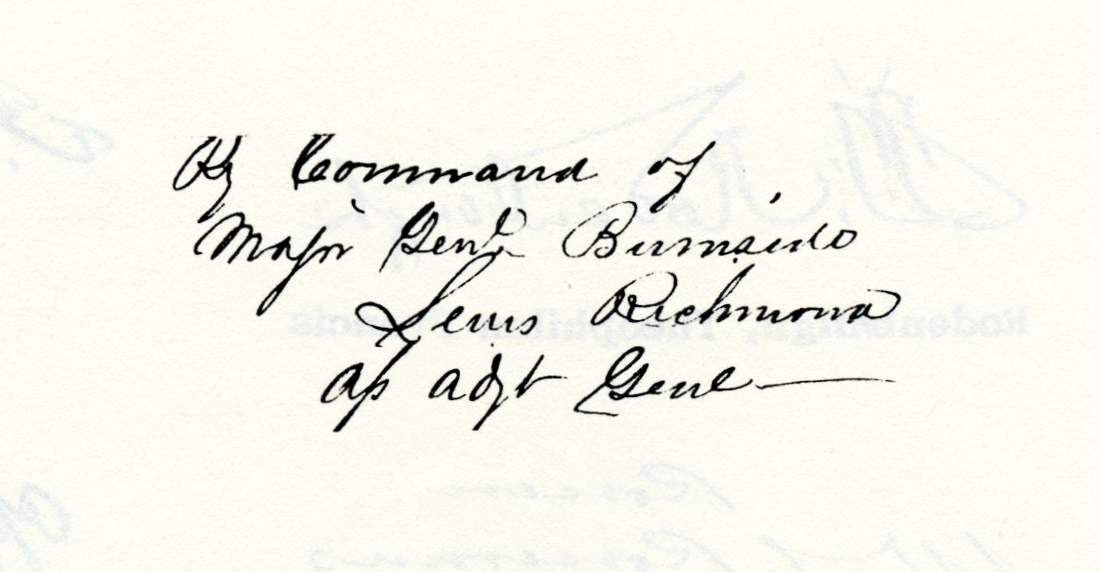 By Command of
Major Genl Burnside
Lewis Richmond
Ass Adjt Genl